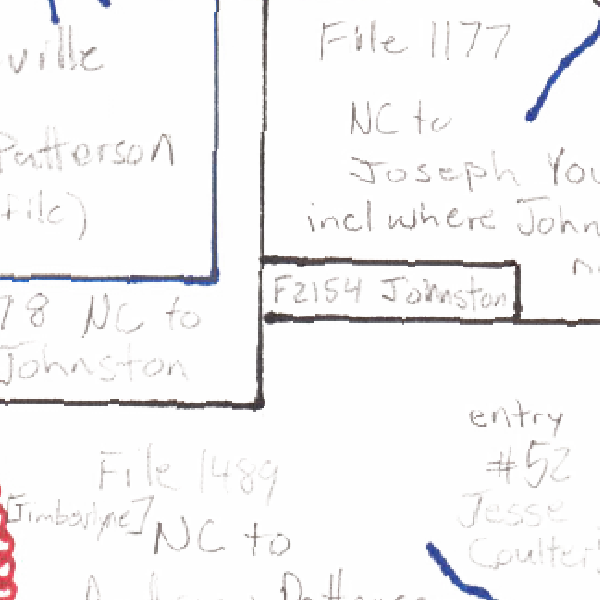 ville
Patterson
file)
78 NC to
Johnston
File 1177
NC to
Joseph You
incl where John
F2154 Johnston
File 1489
NC to
entry
#52
Jesse
Coulter